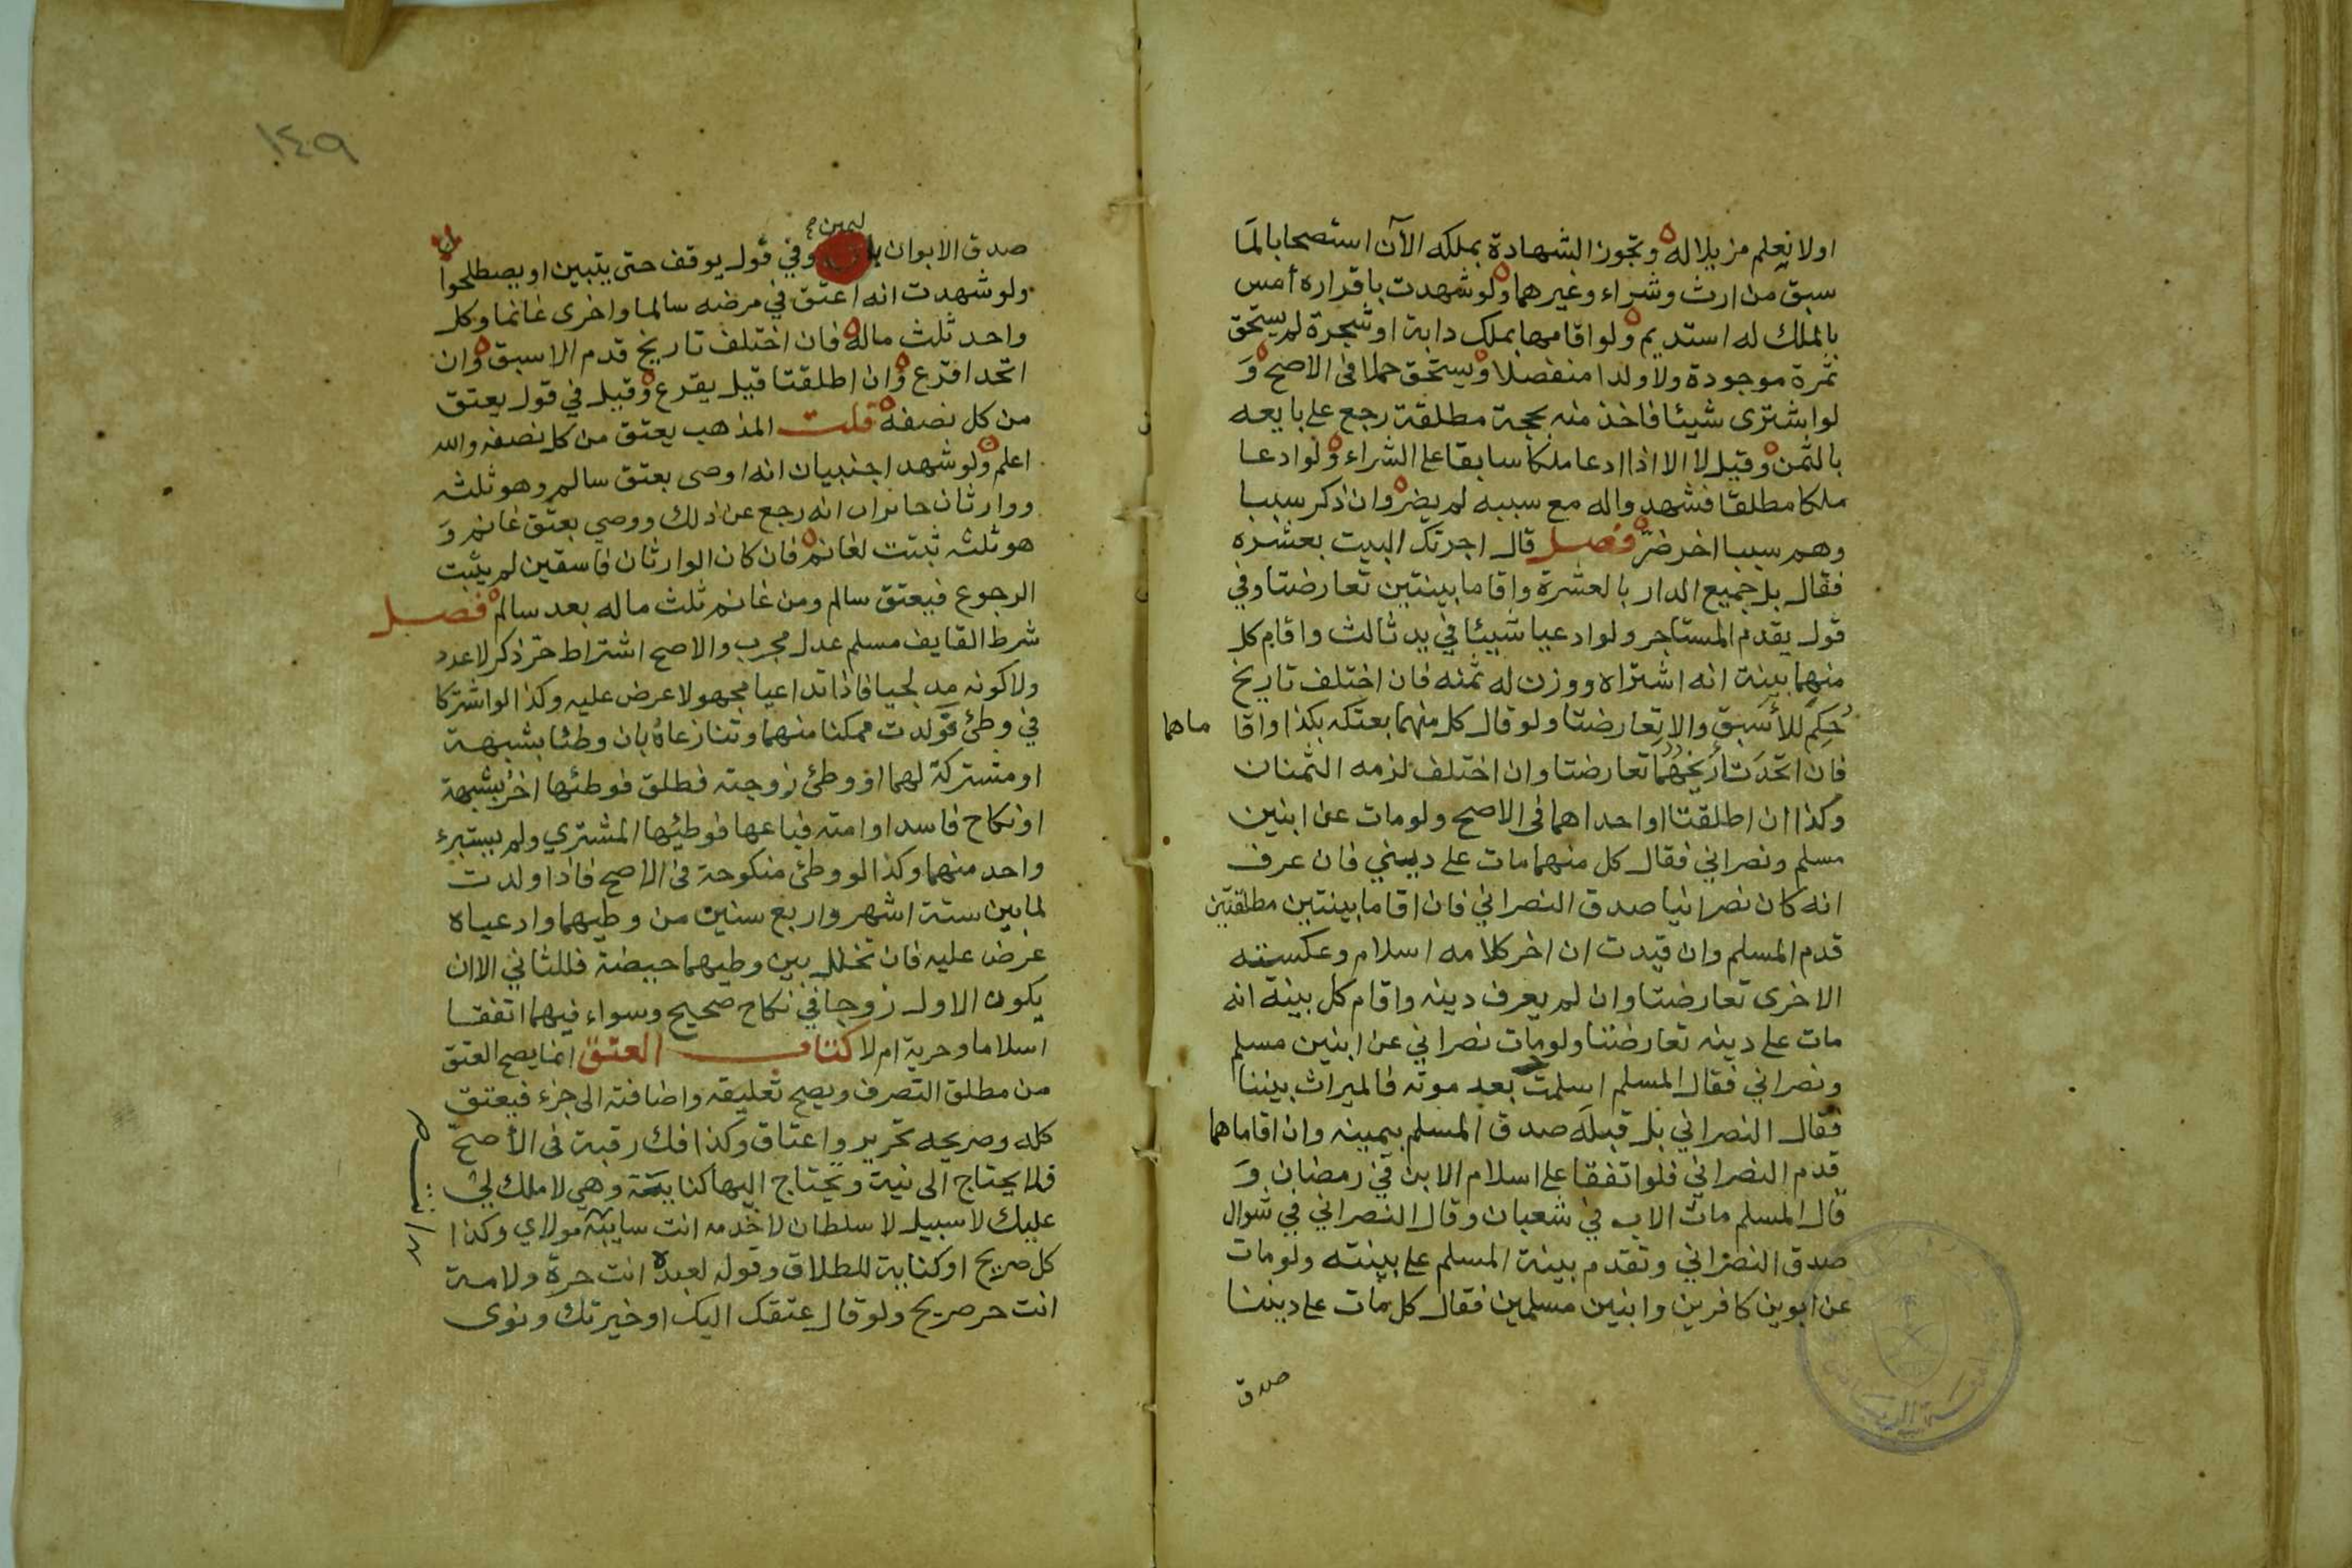 اولا نعلم مزيلا له وتجوز الشهادة بملكه الآن استصحابا لما
سبق من ارث وشراء وغيرهما ولو شهدت باقراره أمس
بالملك له استديم ولو اقامها بملك دابة او شجرة لم يستحق
ثمرة موجودة ولا ولدا منفصلا ويستحق حملا فى الاصح وَ
لو اشترى شيئا فاخذ منه بحجة مطلقة رجع على بايعه
بالثمن وقيل لا الا اذا ادعا ملكا سابقا على الشراء ولو ادعا
ملكا مطلقا فشهدوا له مع سببه لم يضر وان ذكر سببا
وهم سببا اخر ضرّ فصل قال اجرتك البيت بعشره
فقال بل جميع الدار بالعشرة واقاما بينتين تعارضتا وفي
قول يقدم المستاجر ولو ادعيا شيئا في يد ثالث واقام كل
منهما بينة انه اشتراه ووزن له ثمنه فان اختلف تاريخ
حُكِم للأسبق والا تعارضتا ولو قال كل منهما بعتكه بكذا واقا
ماها
فان اتحد تأريخهُما تعارضتا وان اختلف لزمه الثمنان
وكذا ان اطلقتا او احداهما فى الاصح ولو مات عن ابنين
مسلم ونصراني فقال كل منهما مات على ديني فان عرف
انه كان نصرانيا صدق النصراني فان اقاما بينتين مطلقتين
قدم المسلم وان قيدت ان اخر كلامه اسلام وعكسته
الاخرى تعارضتا وان لم يعرف دينه واقام كل بينة انه
مات على دينه تعارضتا ولو مات نصراني عن ابنين مسلم
ونصراني فقال المسلم اسلمت بعد موته فالميراث بيننا
فقال النصراني بل قبله صدق المسلم بيمينه وان اقاماها
قدم النصراني فلو اتفقا على اسلام الابن في رمضان وَ
قال المسلم مات الاب في شعبان وقال النصراني في شوال
صدق النصراني وتقدم بينة المسلم على بينته ولو مات
عن ابوين كافرين وابنين مسلمين فقال كل مات على ديننا
صدق
١٤٩
ليمين
صدق الابوان وفي قول يوقف حتى يتبين او يصطلحوا
ولو شهدت انه اعتق في مرضه سالما واخرى غانما وكل
واحد ثلث ماله فان اختلف تاريخ قدم الاسبق وان
اتحد اقرع وان اطلقتا قيل يقرع وقيل في قول يعتق
من كل نصفه قلت المذهب يعتق من كل نصفه والله
اعلم ولو شهد اجنبيان انه اوصى بعتق سالم وهو ثلثه
ووارثان حائزان انه رجع عن ذلك ووصى بعتق غانم وَ
هو ثلثه ثبتت لغانم فان كان الوارثان فاسقين لم يثبت
الرجوع فيعتق سالم ومن غانم ثلث ماله بعد سالم فصل
شرط القايف مسلم عدل مجرب والاصح اشتراط حر ذكر لا عدد
ولا كونه مدلجيا فاذا تداعيا مجهولا عرض عليه وكذا لو اشتركا
في وطئ فولدت ممكنا منهما وتنازعاهُ بان وطئا بشبهة
او مشتركة لهما او وطئ زوجته فطلق فوطئها اخر بشبهة
او نكاح فاسد او امته فباعها فوطئها المشتري ولم يستبرء
واحد منهما وكذا لو وطئ منكوحة فى الاصح فاذا ولدت
لما بين ستة اشهر واربع سنين من وطيهما وادعياه
عرض عليه فان تخلل بين وطيهما حيضة فللثاني الا ان
يكون الاول زوجا في نكاح صحيح وسواء فيهما اتفقا
اسلاما وحرية ام لا كتاب العتق انما يصح العتق
من مطلق التصرف ويصح تعليقه واضافته الى جزء فيعتق
كله وصريحه تحرير واعتاق وكذا فك رقبة فى الأصح
فلا يحتاج الى نية ويحتاج اليها كنايته وهي لا ملك لي
عليك لا سبيل لا سلطان لا خدمه انت سايبة مولاي وكذا
كل صريح او كناية للطلاق وقوله لعبده انت حرة ولامة
انت حر صريح ولو قال عتقك اليك او خيرتك ونوى